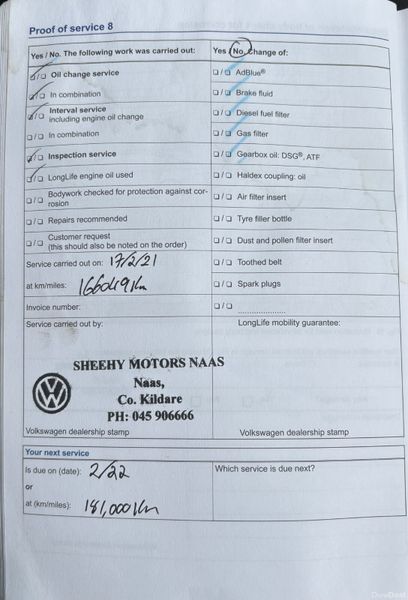 Proof of service 8
Yes / No. The following work was carried out:
Yes / No. Change of:
Oil change service
In combination
Interval service
including engine oil change
In combination
Inspection service
LongLife engine oil used
Bodywork checked for protection against cor-
rosion
Repairs recommended
Customer request
(this should also be noted on the order)
AdBlue®
Brake fluid
Diesel fuel filter
Gas filter
Gearbox oil: DSG®, ATF
Haldex coupling: oil
Air filter insert
Tyre filler bottle
Dust and pollen filter insert
Toothed belt
Spark plugs
Service carried out on: 17/2/21
at km/miles: 166049 Km
Invoice number:
Service carried out by:
LongLife mobility guarantee:
SHEEHY MOTORS NAAS
Naas,
Co. Kildare
PH: 045 906666
Volkswagen dealership stamp
Volkswagen dealership stamp
Your next service
Is due on (date): 2/22
or
at (km/miles): 181,000 Km
Which service is due next?
DoneDeal